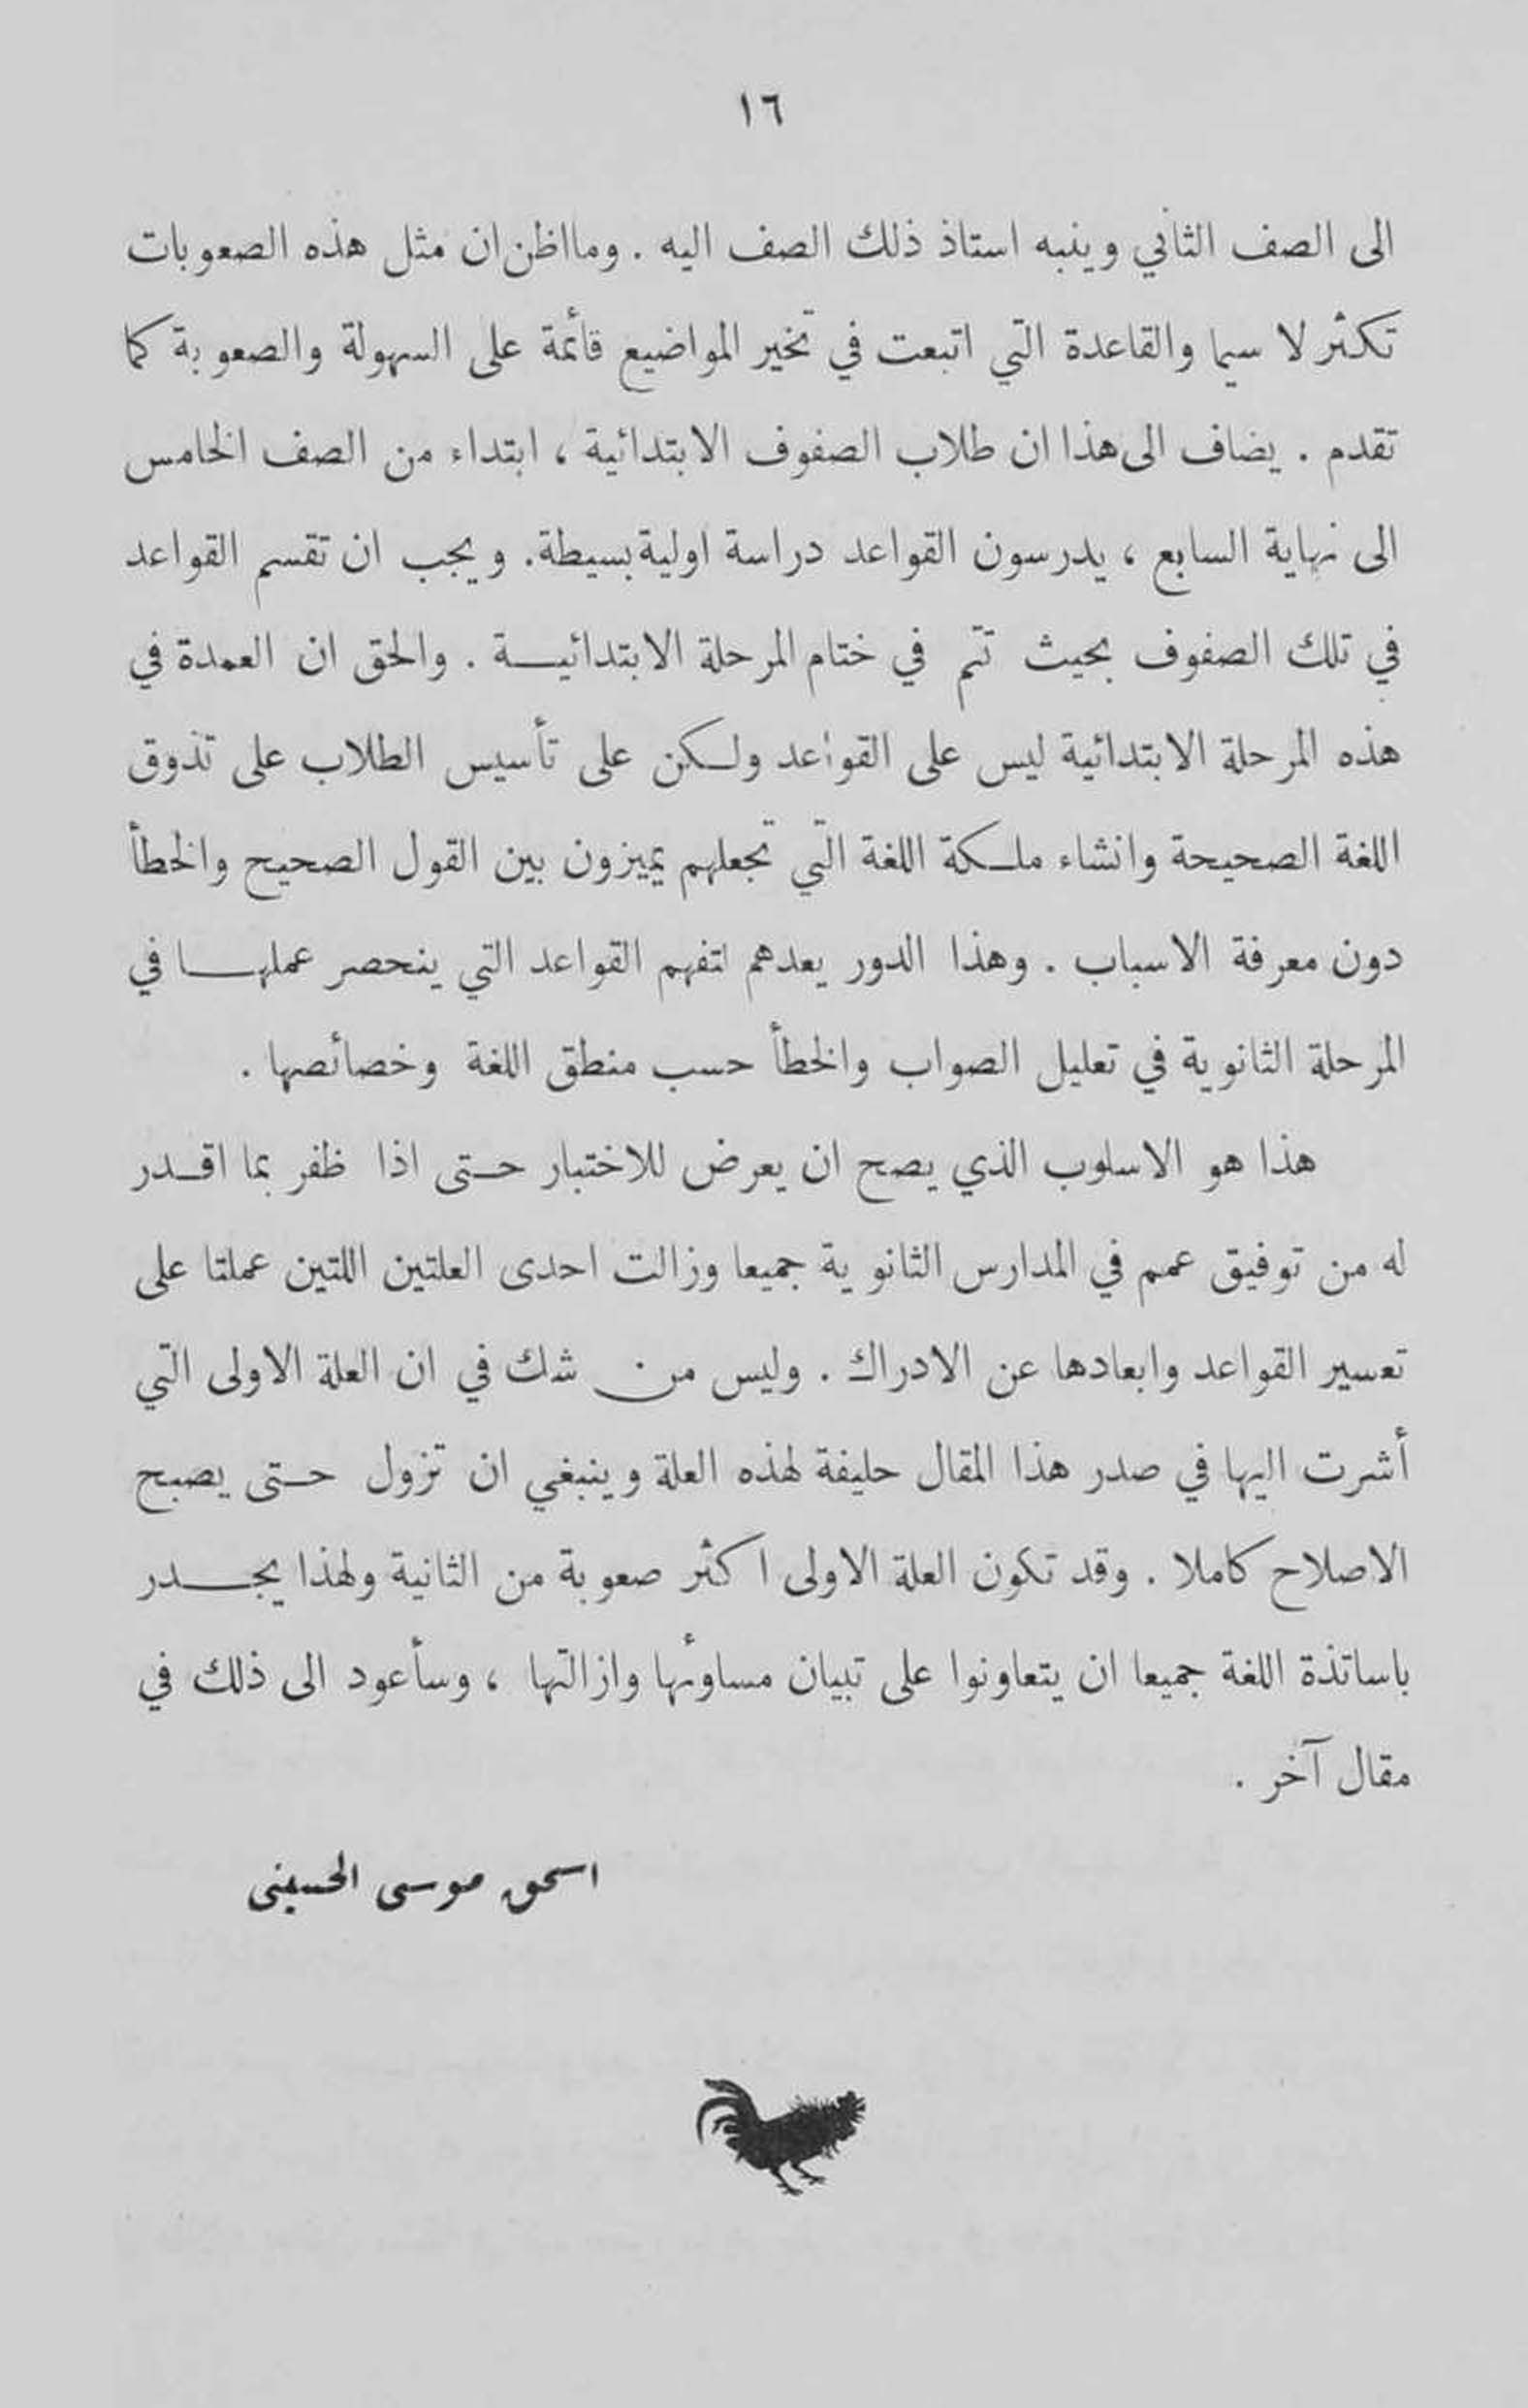 ١٦
الى الصف الثاني وينبه استاذ ذلك الصف اليه . وما اظن ان مثل هذه الصعوبات
تكثر لا سيما والقاعدة التي اتبعت في تخير المواضيع قائمة على السهولة والصعوبة كما
تقدم . يضاف الى هذا ان طلاب الصفوف الابتدائية ، ابتداء من الصف الخامس
الى نهاية السابع ، يدرسون القواعد دراسة اولية بسيطة. ويجب ان تقسم القواعد
في تلك الصفوف بحيث تتم في ختام المرحلة الابتدائيــة . والحق ان العمدة في
هذه المرحلة الابتدائية ليس على القواعد ولكن على تأسيس الطلاب على تذوق
اللغة الصحيحة وانشاء ملكة اللغة التي تجعلهم يميزون بين القول الصحيح والخطأ
دون معرفة الاسباب . وهذا الدور يعدهم لتفهم القواعد التي ينحصر عملهــا في
المرحلة الثانوية في تعليل الصواب والخطأ حسب منطق اللغة وخصائصها .
هذا هو الاسلوب الذي يصح ان يعرض للاختبار حـتى اذا ظفر بما اقـدر
له من توفيق عمم في المدارس الثانوية جميعا وزالت احدى العلتين اللتين عملتا على
تعسير القواعد وابعادها عن الادراك . وليس من شك في ان العلة الاولى التي
أشرت اليها في صدر هذا المقال حليفة لهذه العلة وينبغي ان تزول حـتى يصبح
الاصلاح كاملا . وقد تكون العلة الاولى اكثر صعوبة من الثانية ولهذا يجــدر
باساتذة اللغة جميعا ان يتعاونوا على تبيان مساوئها وازالتها ، وسأعود الى ذلك في
مقال آخر .
اسحق موسى الحسيني